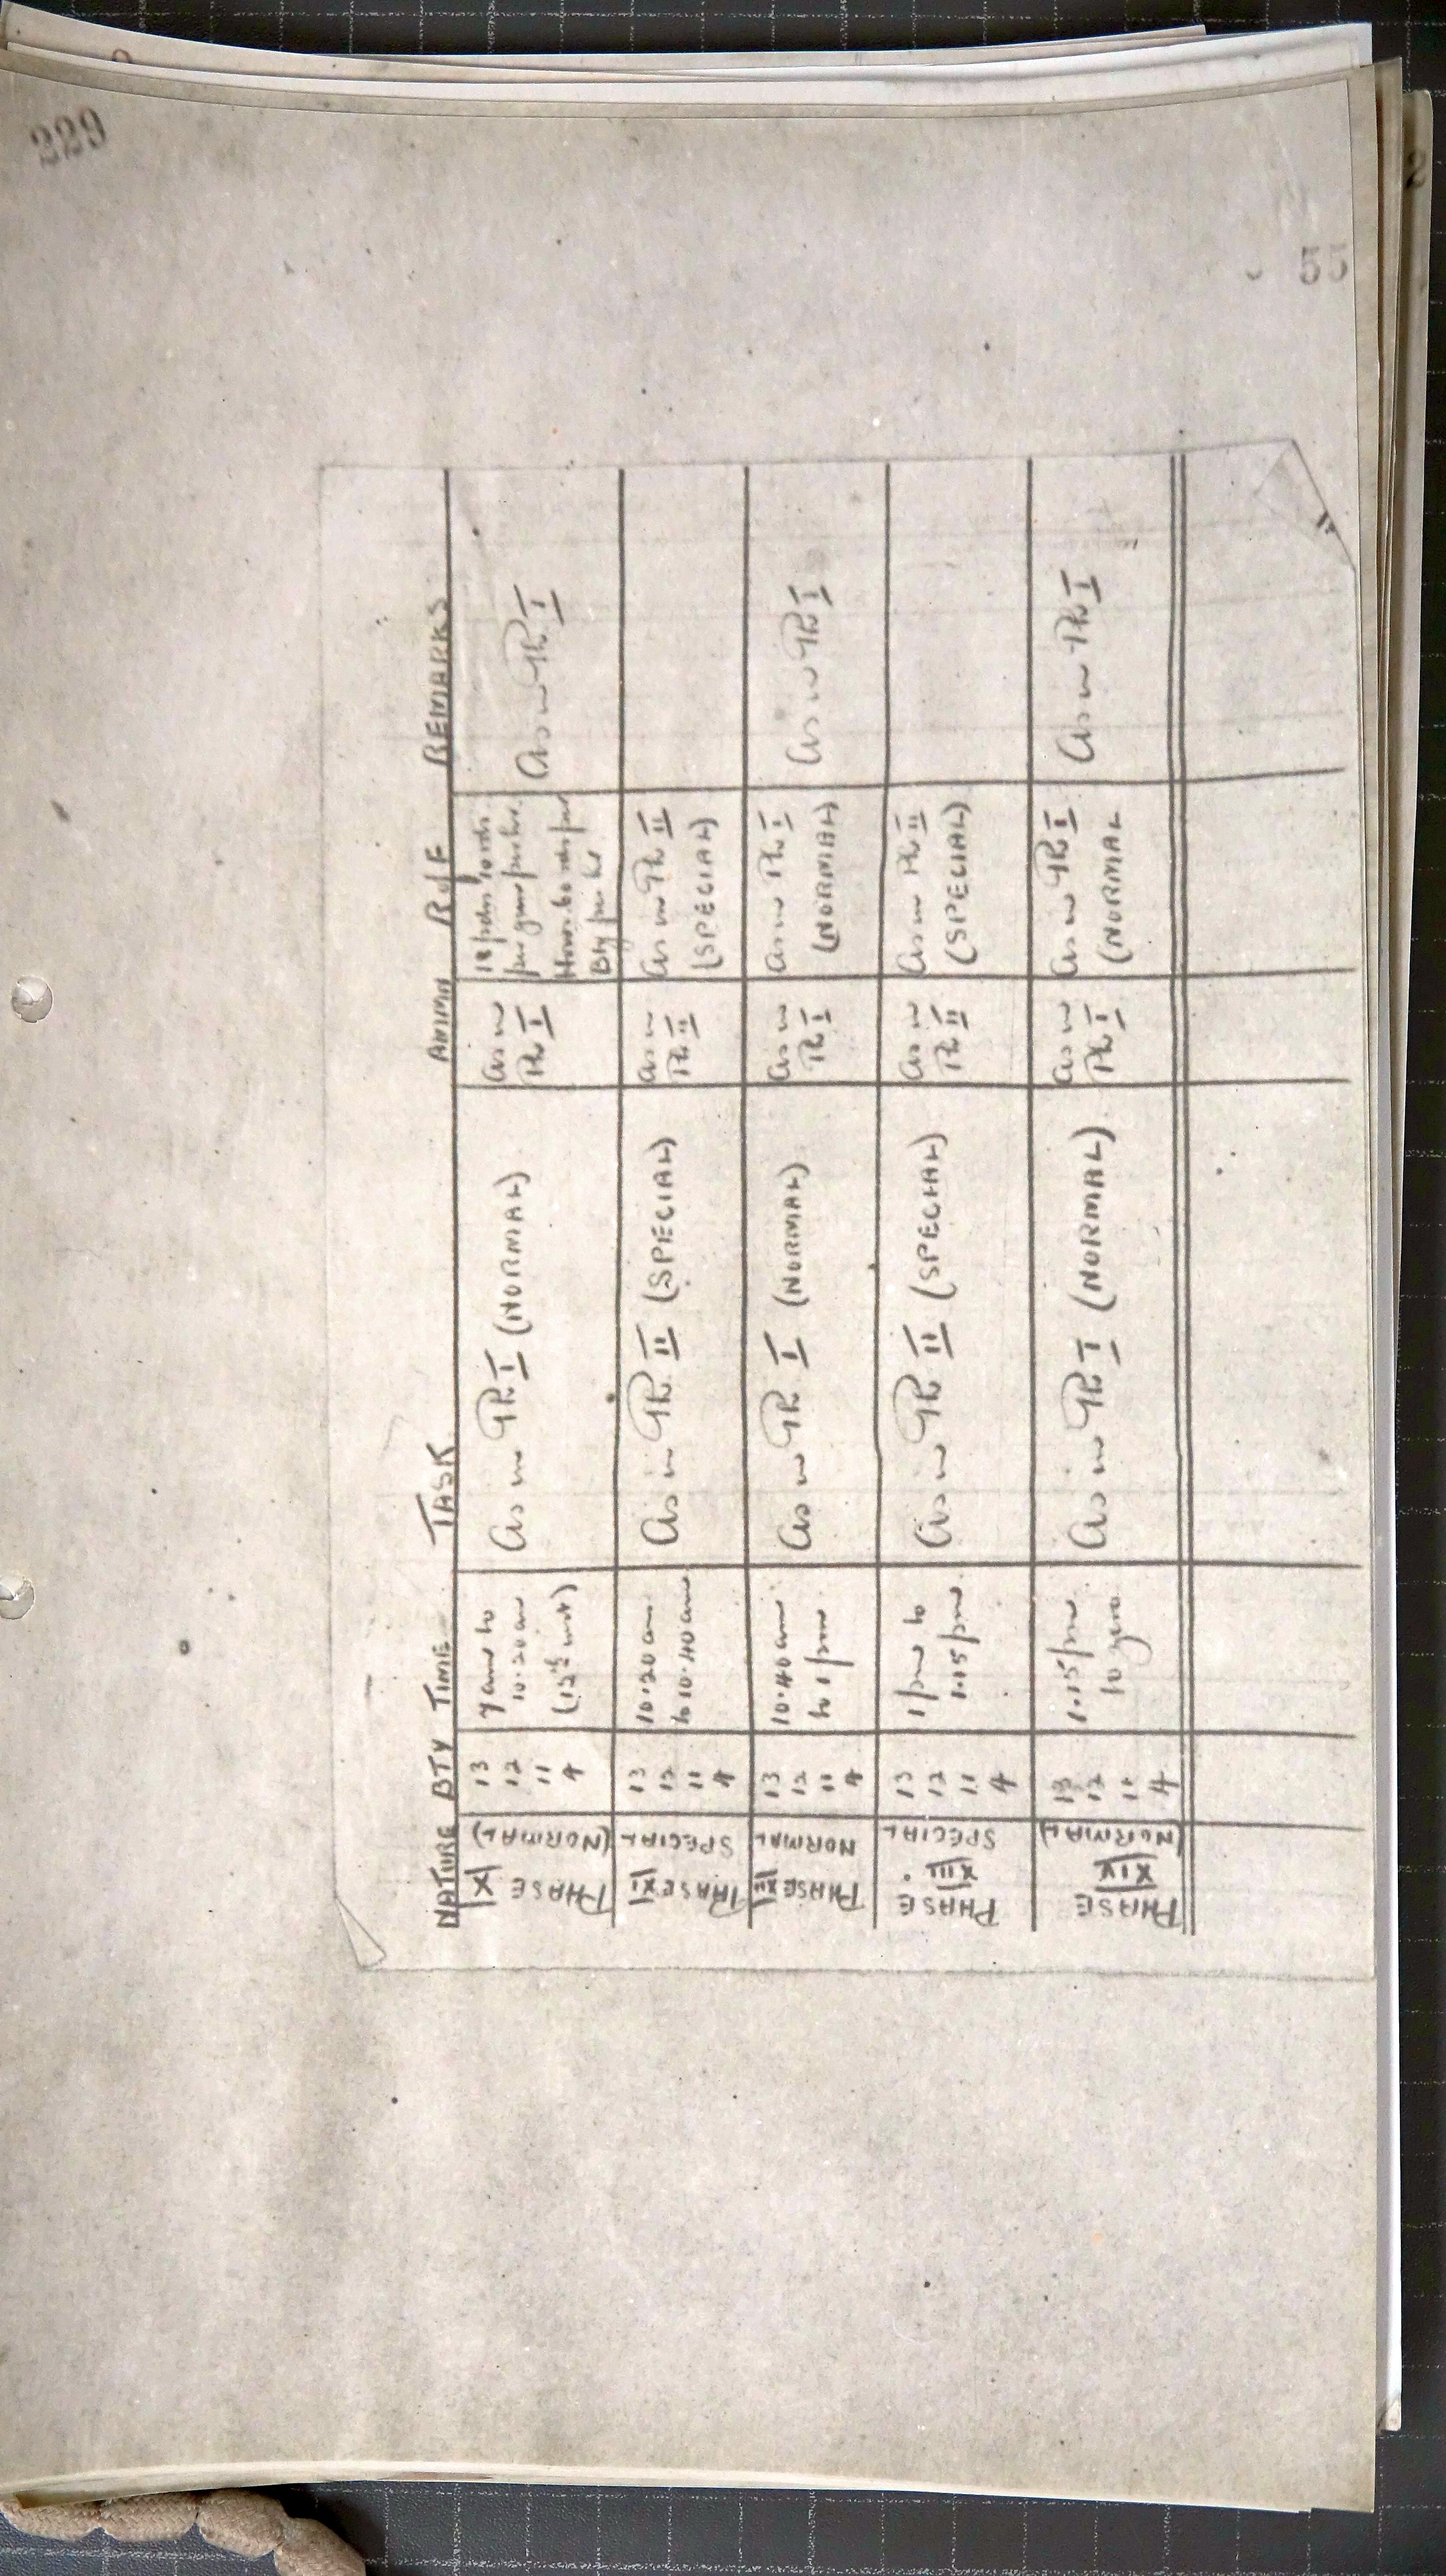 229
55
NATURE BTY TIME TASK AMMN R of F REMARKS
PHASE X (NORMAL)
13
12
11
4
7 am to
10.20 am
(12th inst)
As in Ph I (NORMAL)
As in
Ph I
18 pdrs 10 rds
per gun per hr.
Hows. 60 rds per
Bty per hr
As in Ph I
PHASE XI SPECIAL
13
12
11
4
10.20 am
to 10.40 am
As in Ph II (SPECIAL)
As in
Ph II
As in Ph II
(SPECIAL)
PHASE XII NORMAL
13
12
11
4
10.40 am
to 1 pm
As in Ph I (NORMAL)
As in
Ph I
As in Ph I
(NORMAL)
As in Ph I
PHASE
XIII
SPECIAL
13
12
11
4
1 pm to
1.15 pm
As in Ph II (SPECIAL)
As in
Ph II
As in Ph II
(SPECIAL)
PHASE
XIV
(NORMAL)
13
12
11
4
1.15 pm
to zero
As in Ph I (NORMAL)
As in
Ph I
As in Ph I
(NORMAL
As in Ph I